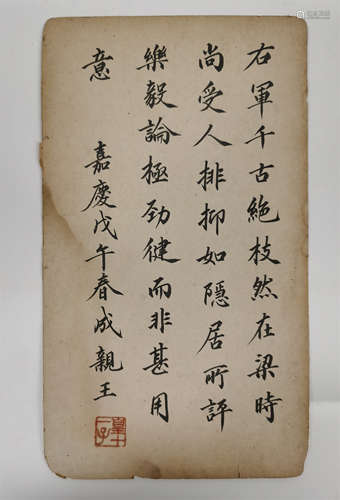 右軍千古絶枝然在梁時
尚受人排抑如隱居所評
樂毅論極勁健而非甚用
意
嘉慶戊午春成親王
皇十一子